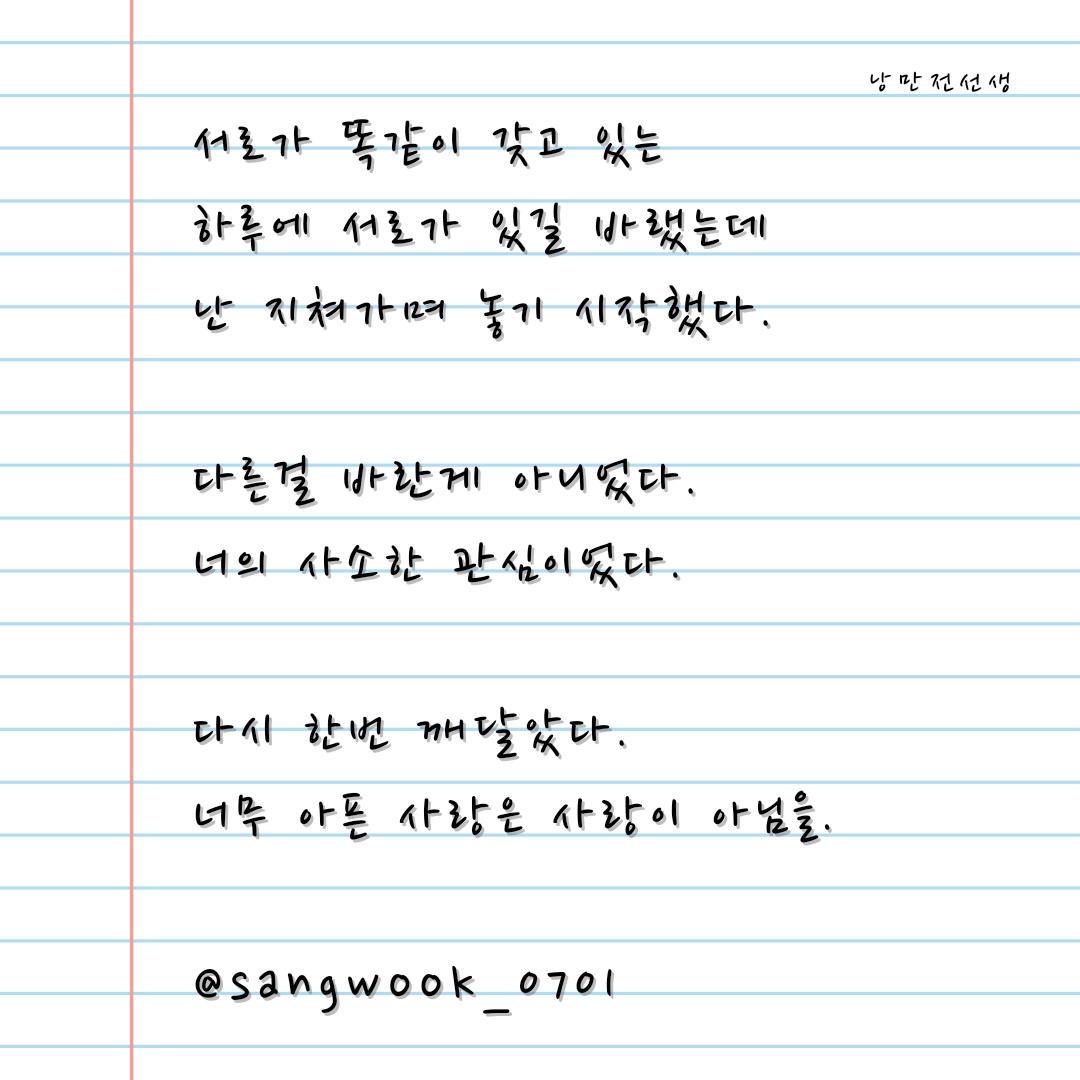 낭만전선생
서로가 똑같이 갖고 있는
하루에 서로가 있길 바랬는데
난 지쳐가며 놓기 시작했다.
다른걸 바란게 아니었다.
너의 사소한 관심이었다.
다시 한번 깨달았다.
너무 아픈 사랑은 사랑이 아님을.
@sangwook_0701